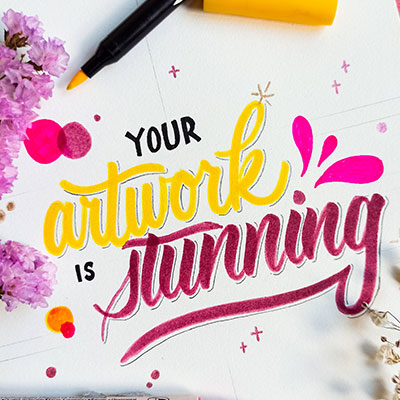 YOUR
artwork
IS
stunning